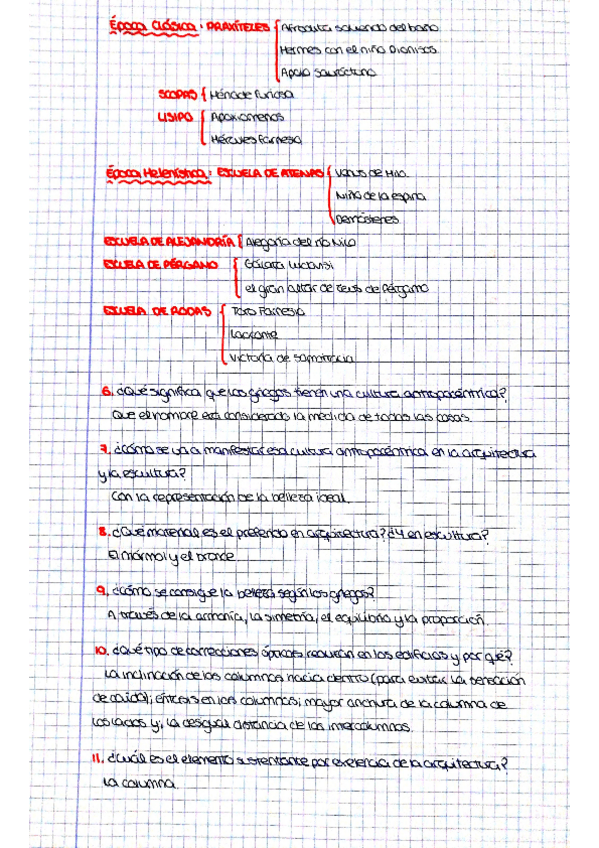 Época Clásica: PRAXÍTELES { Afrodita saliendo del baño
Hermes con el niño Dionisos
Apolo Sauróctono
SCOPAS { Ménade furiosa
LISIPO { Apoxiomenos
Hércules Farnesio
Época Helenística: ESCUELA DE ATENAS { Venus de Milo
Niño de la espina
Demóstenes
ESCUELA DE ALEJANDRÍA { Alegoría del río Nilo
ESCUELA DE PÉRGAMO { Gálata Ludovisi
el gran altar de Zeus de Pérgamo
ESCUELA DE RODAS { Toro Farnesio
Laoconte
Victoria de Samotracia
6. ¿Qué significa que los griegos tienen una cultura antropocéntrica?
Que el hombre era considerado la medida de todas las cosas.
7. ¿Cómo se va a manifestar esa cultura antropocéntrica en la arquitectura
y la escultura?
Con la representación de la belleza ideal.
8. ¿Qué material es el preferido en arquitectura? ¿Y en escultura?
El mármol y el bronce.
9. ¿Cómo se consigue la belleza según los griegos?
A través de la armonía, la simetría, el equilibrio y la proporción.
10. ¿Qué tipo de correcciones ópticas realizan en los edificios y por qué?
La inclinación de las columnas hacia dentro (para evitar la sensación
de caída); éntasis en las columnas; mayor anchura de la columna de
los lados y; la desigual distancia de los intercolumnios.
11. ¿Cuál es el elemento sustentante por excelencia de la arquitectura?
La columna.